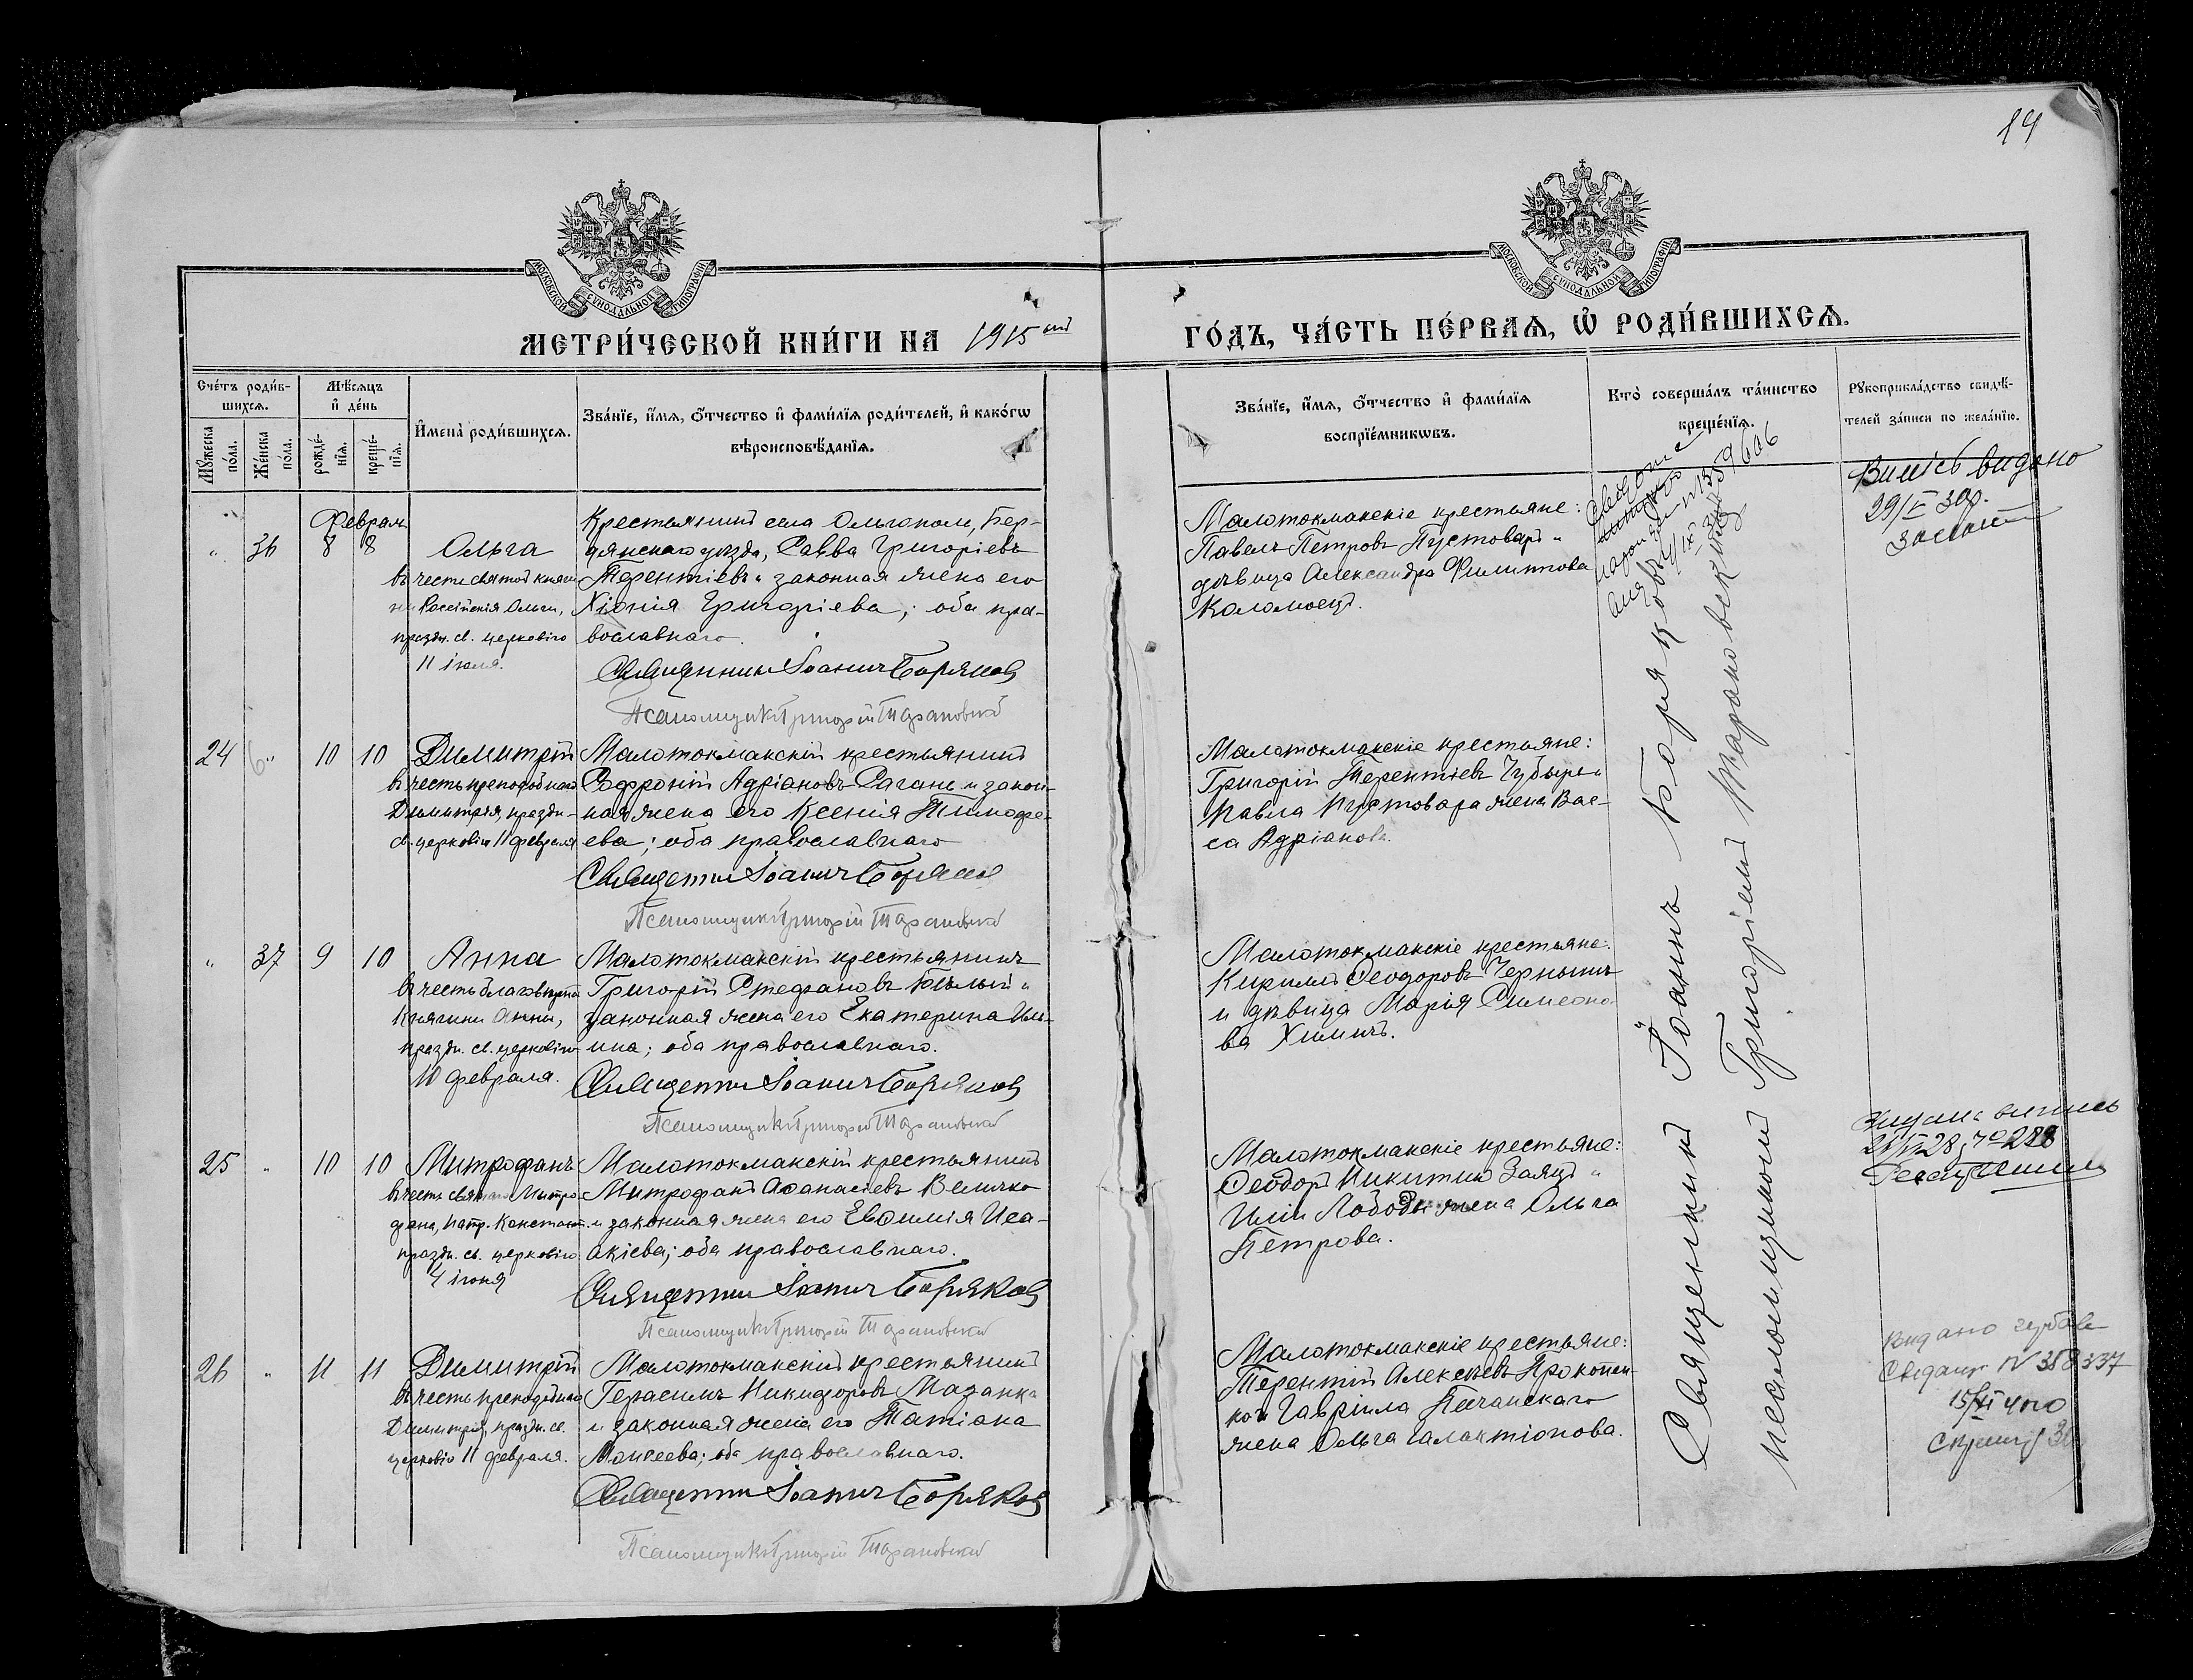 19
МОСКОВСКОЙ СУНОДАЛЬНОЙ ТИПОГРАФІИ
МОСКОВСКОЙ СУНОДАЛЬНОЙ ТИПОГРАФІИ
МЕТРИ́ЧЕСКОЙ КНИ́ГИ НА 1915 ый ГО́ДЪ, ЧА́СТЬ ПЕ́РВАѦ, Ѡ҆ РОДИ́ВШИХСѦ.
Сче́тъ роди́в-
шихсѧ.
Мѣ́сѧцъ
и҆ де́нь
Мꙋ́жеска
по́ла.
Же́нска
по́ла.
рожде́-
нїѧ.
креще́-
нїѧ.
И҆мена̀ роди́вшихсѧ.
Зва́нїе, и҆́мѧ, ѻ҆́тчество и҆ фами́лїѧ роди́телей, и҆ како́гѡ
вѣроисповѣ́данїѧ.
Зва́нїе, и҆́мѧ, ѻ҆́тчество и҆ фами́лїѧ
воспрїе́мникѡвъ.
Кто̀ соверша́лъ та́инство
креще́нїѧ.
Рꙋкоприкла́дство свидѣ́-
телей за́писи по жела́нїю.
Февраль
" 36 8 8 Ольга
въ честь святой княги
ни Россійскія Ольги,
праздн. св. церковію
11 іюля.
Крестьянинъ села Ольгополя, Бер-
дянскаго уѣзда, Савва Григоріевъ
Терентіевъ и законная жена его
Хіонія Григоріева; оба пра-
вославнаго.
Священникъ Іоаннъ Боряковъ
Псаломщикъ Григорій Тарановскій
Малотокмакскіе крестьяне:
Павелъ Петровъ Пустоваръ и
дѣвица Александра Филиппова
Коломоецъ.
Виписъ видано
29/V 30р.
24 " 10 10 Димитрій
въ честь преподобнаго
Димитрія, праздн-
св. церковію 11 февраля
Малотокмакскій крестьянинъ
Софроній Адріановъ Саганъ и закон-
ная жена его Ксенія Тимофе-
ева; оба православнаго
Священникъ Іоаннъ Боряковъ
Псаломщикъ Григорій Тарановскій
Малотокмакскіе крестьяне:
Григорій Терентіевъ Чубырь и
Павла Пустовара жена Вас-
са Адріанова.
" 37 9 10 Анна
въ честь благовѣрной
Княгини Анны,
праздн. св. церковію
10 февраля.
Малотокмакскій крестьянинъ
Григорій Стефановъ Бѣлый и
законная жена его Екатерина Иль-
ина; оба православнаго.
Священникъ Іоаннъ Боряковъ
Псаломщикъ Григорій Тарановскій
Малотокмакскіе крестьяне:
Кириллъ Ѳеодоровъ Чернышъ
и дѣвица Марія Симеоно-
ва Химичъ.
25 " 10 10 Митрофанъ
въ честь святаго Митро
фана, патр. Констант.
праздн. св. церковію
4 іюня
Малотокмакскій крестьянинъ
Митрофанъ Аѳанасіевъ Величко
и законная жена его Евѳимія Иса-
акіева; оба православнаго.
Священникъ Іоаннъ Боряковъ
Псаломщикъ Григорій Тарановскій
Малотокмакскіе крестьяне:
Ѳеодоръ Никитинъ Заяцъ и
Иліи Лободы жена Ольга
Петрова.
26 " 11 11 Димитрій
въ честь преподобнаго
Димитрія, праздн. св.
церковію 11 февраля.
Малотокмакскій крестьянинъ
Герасимъ Никифоровъ Мазанка
и законная жена его Татіана
Моисеева; оба православнаго.
Священникъ Іоаннъ Боряковъ
Псаломщикъ Григорій Тарановскій
Малотокмакскіе крестьяне:
Терентій Алексѣевъ Прокопен-
ко и Гавріила Печанскаго
жена Ольга Галактіонова.
Священникъ Іоаннъ Боряковъ
псаломщикомъ Григоріемъ Тарановскимъ